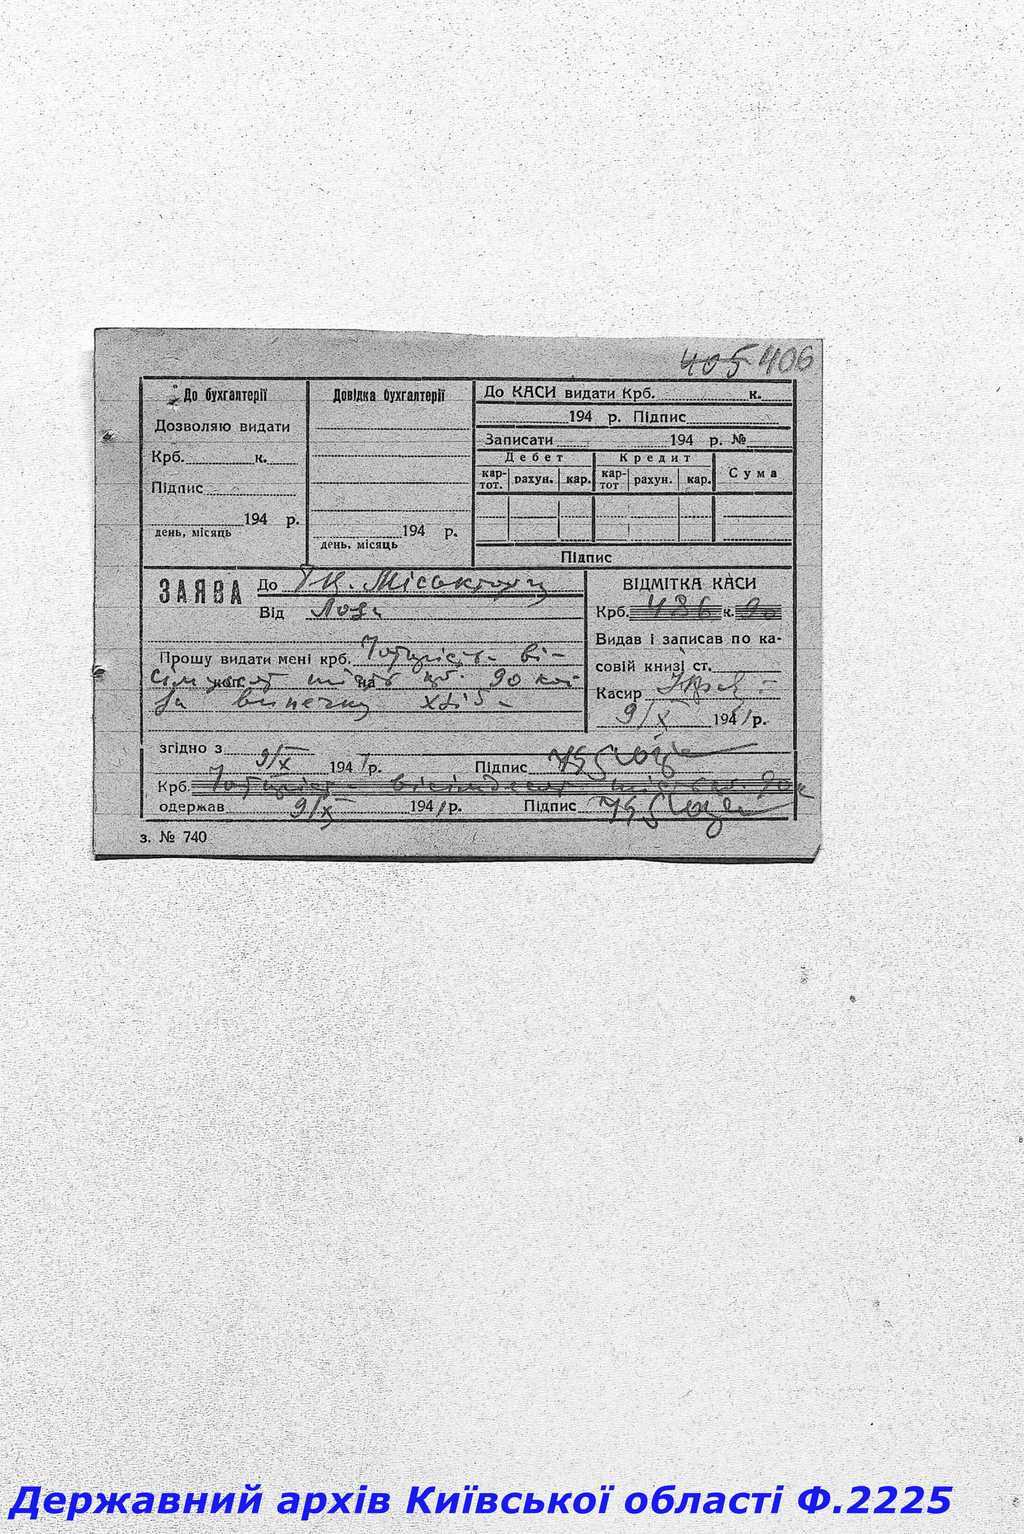 405 406
До бухгалтерії
Дозволяю видати
Крб. к.
Підпис
194 р.
день, місяць
Довідка бухгалтерії
194 р.
день, місяць
До КАСИ видати Крб. к.
194 р. Підпис
Записати 194 р. №
Дебет Кредит Сума
кар-тот. рахун. кар. кар-тот рахун. кар.
Підпис
ЗАЯВА До
Від Лози
Прошу видати мені крб. Чотириста ві-
сімдесят шість крб. 90 коп
за випечку хліб
ВІДМІТКА КАСИ
Крб. 486 к. 90
Видав і записав по ка-
совій книзі ст.
Касир
9/X 1941 р.
згідно з
9/X 1941 р. Підпис
Крб. Чотириста вісімдесят шість крб. 90 к
одержав 9/X 1941 р. Підпис
з. № 740
Державний архів Київської області Ф.2225